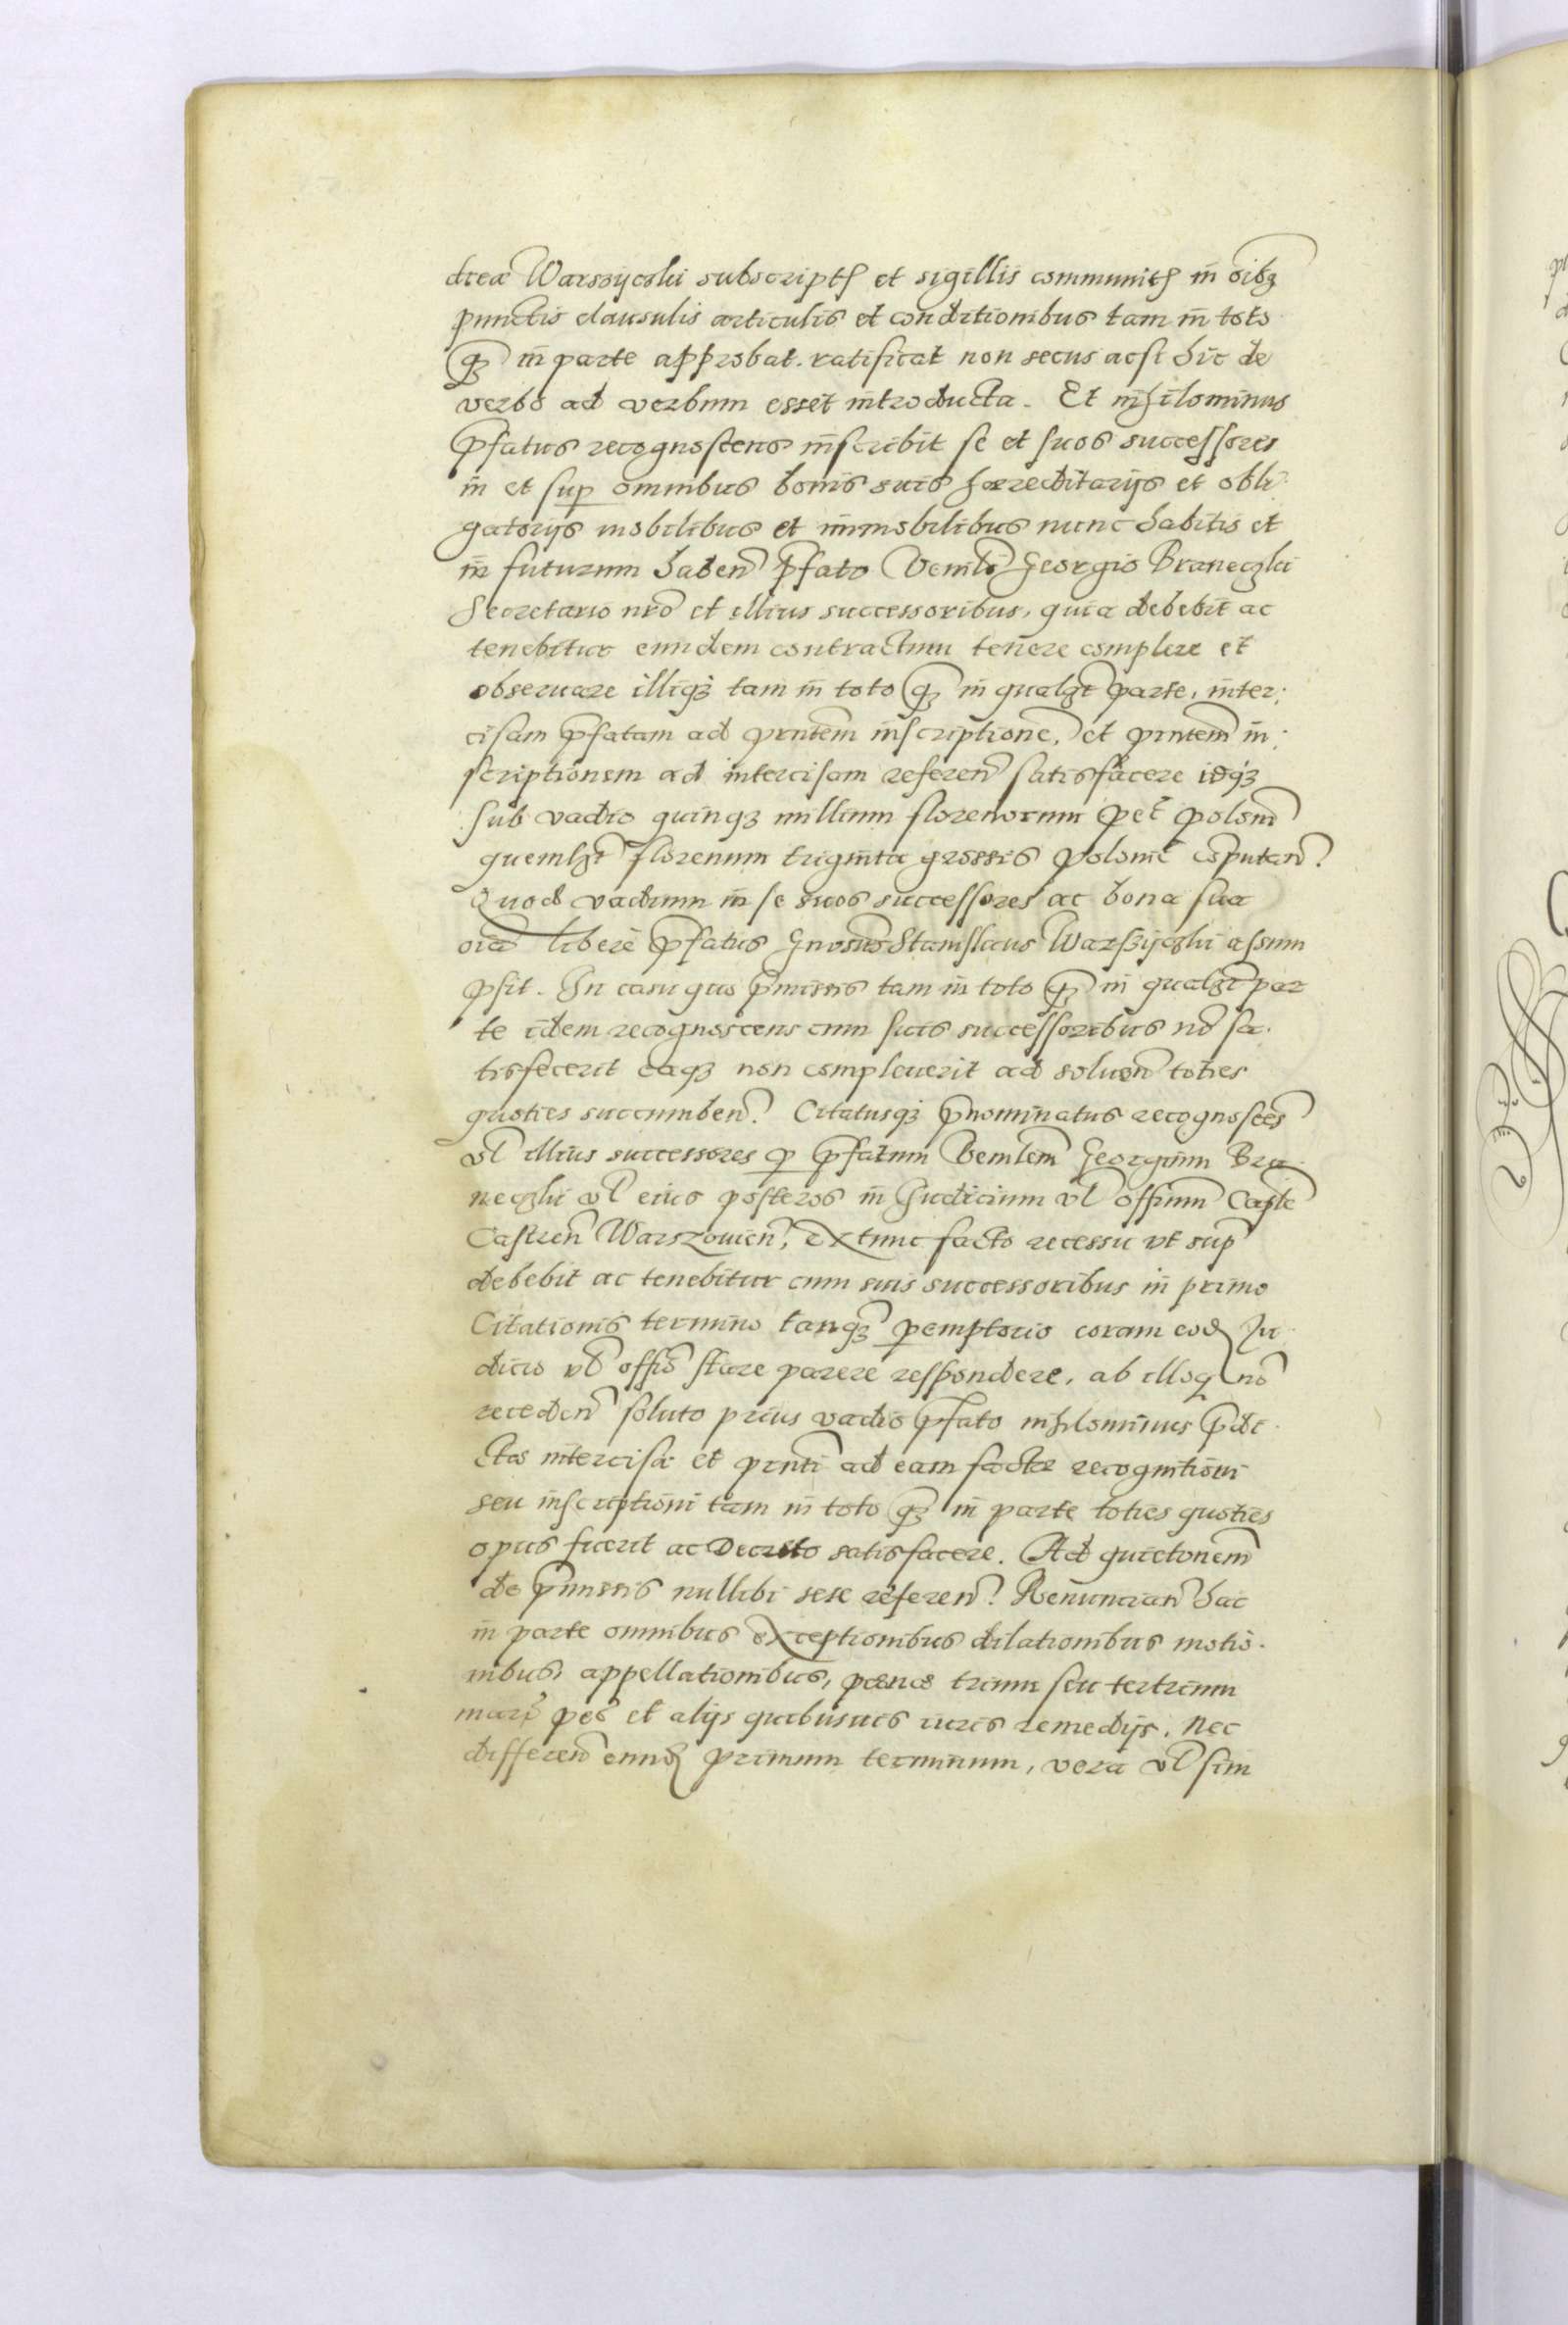 dreæ Warszyczki subscript et sigillis communit in oĩbꝫ
punctis clausulis articulis et conditionibus tam in toto
qꝫ in parte approbat. ratificat non secus acsi hic de
verbo ad verbum esset introducta. Et nihilominus
pfatus recognoscens inscribit se et suos successores
in et sup omnibus bonis suis hæreditarijs et obli
gatorijs mobilibus et immobilibus nunc habitis et
in futurum haben̄ pfato Venlĩ Georgio Braneczki
Secretario nr̃o et illius successoribus, quia debebit ac
tenebitur eundem contractum tenere complere et
obseruare illiqꝫ tam in toto qꝫ in qualꝫt parte, inter:
cisam pfatam ad pn̄tem inscriptionē, et pn̄tem in:
scriptionem ad intercisam referen̄ satisfacere idqꝫ
sub vadio quinqꝫ millium florenorum pec̃ polon̄
quemlꝫt florenum triginta grossis polonic̃ cõputan̄.
Quod vadium in se suos successores ac bona sua
oĩa libere pfatus Gnosus Stanislaus Warszyczki assum
psit. In casu quo pmissis tam in toto qꝫ in qualꝫt par
te idem recognoscens cum suis successoribus nõ sa.
tisfecerit eaqꝫ non compleuerit ad soluen̄ toties
quoties succumben̄. Citatusqꝫ pnominatus recognoscẽs
vl̃ illius successores p pfatum Venlem Georgium Bra
neczki vl̃ eius posteros in Iudicium vl̃ offium Caple
Castren̄ Warszouien̄, extunc facto recessu vt sup
debebit ac tenebitur cum suis successoribus in primo
Citationis termino tanqꝫ pemptorio coram eod Iu
dicio vl̃ offio stare parere respondere, ab illoqꝫ nõ
receden̄ soluto prius vadio pfato nihilominus pdi
ctæ intercisæ et pn̄ti ad eam factæ recognitioni
seu inscriptioni tam in toto qꝫ in parte toties quoties
opus fuerit ac Decreto satisfacere. Ad quictonem
de pmissis nullibi sese referen̄. Renuncian̄ hac
in parte omnibus exceptionibus dilationibus motio.
nibus, appellationibus, pœnæ trium seu tertrium
mar pec̃ et alijs quibusuis iuris remedijs. Nec
differen̄ eund primum terminum, vera vl̃ sim